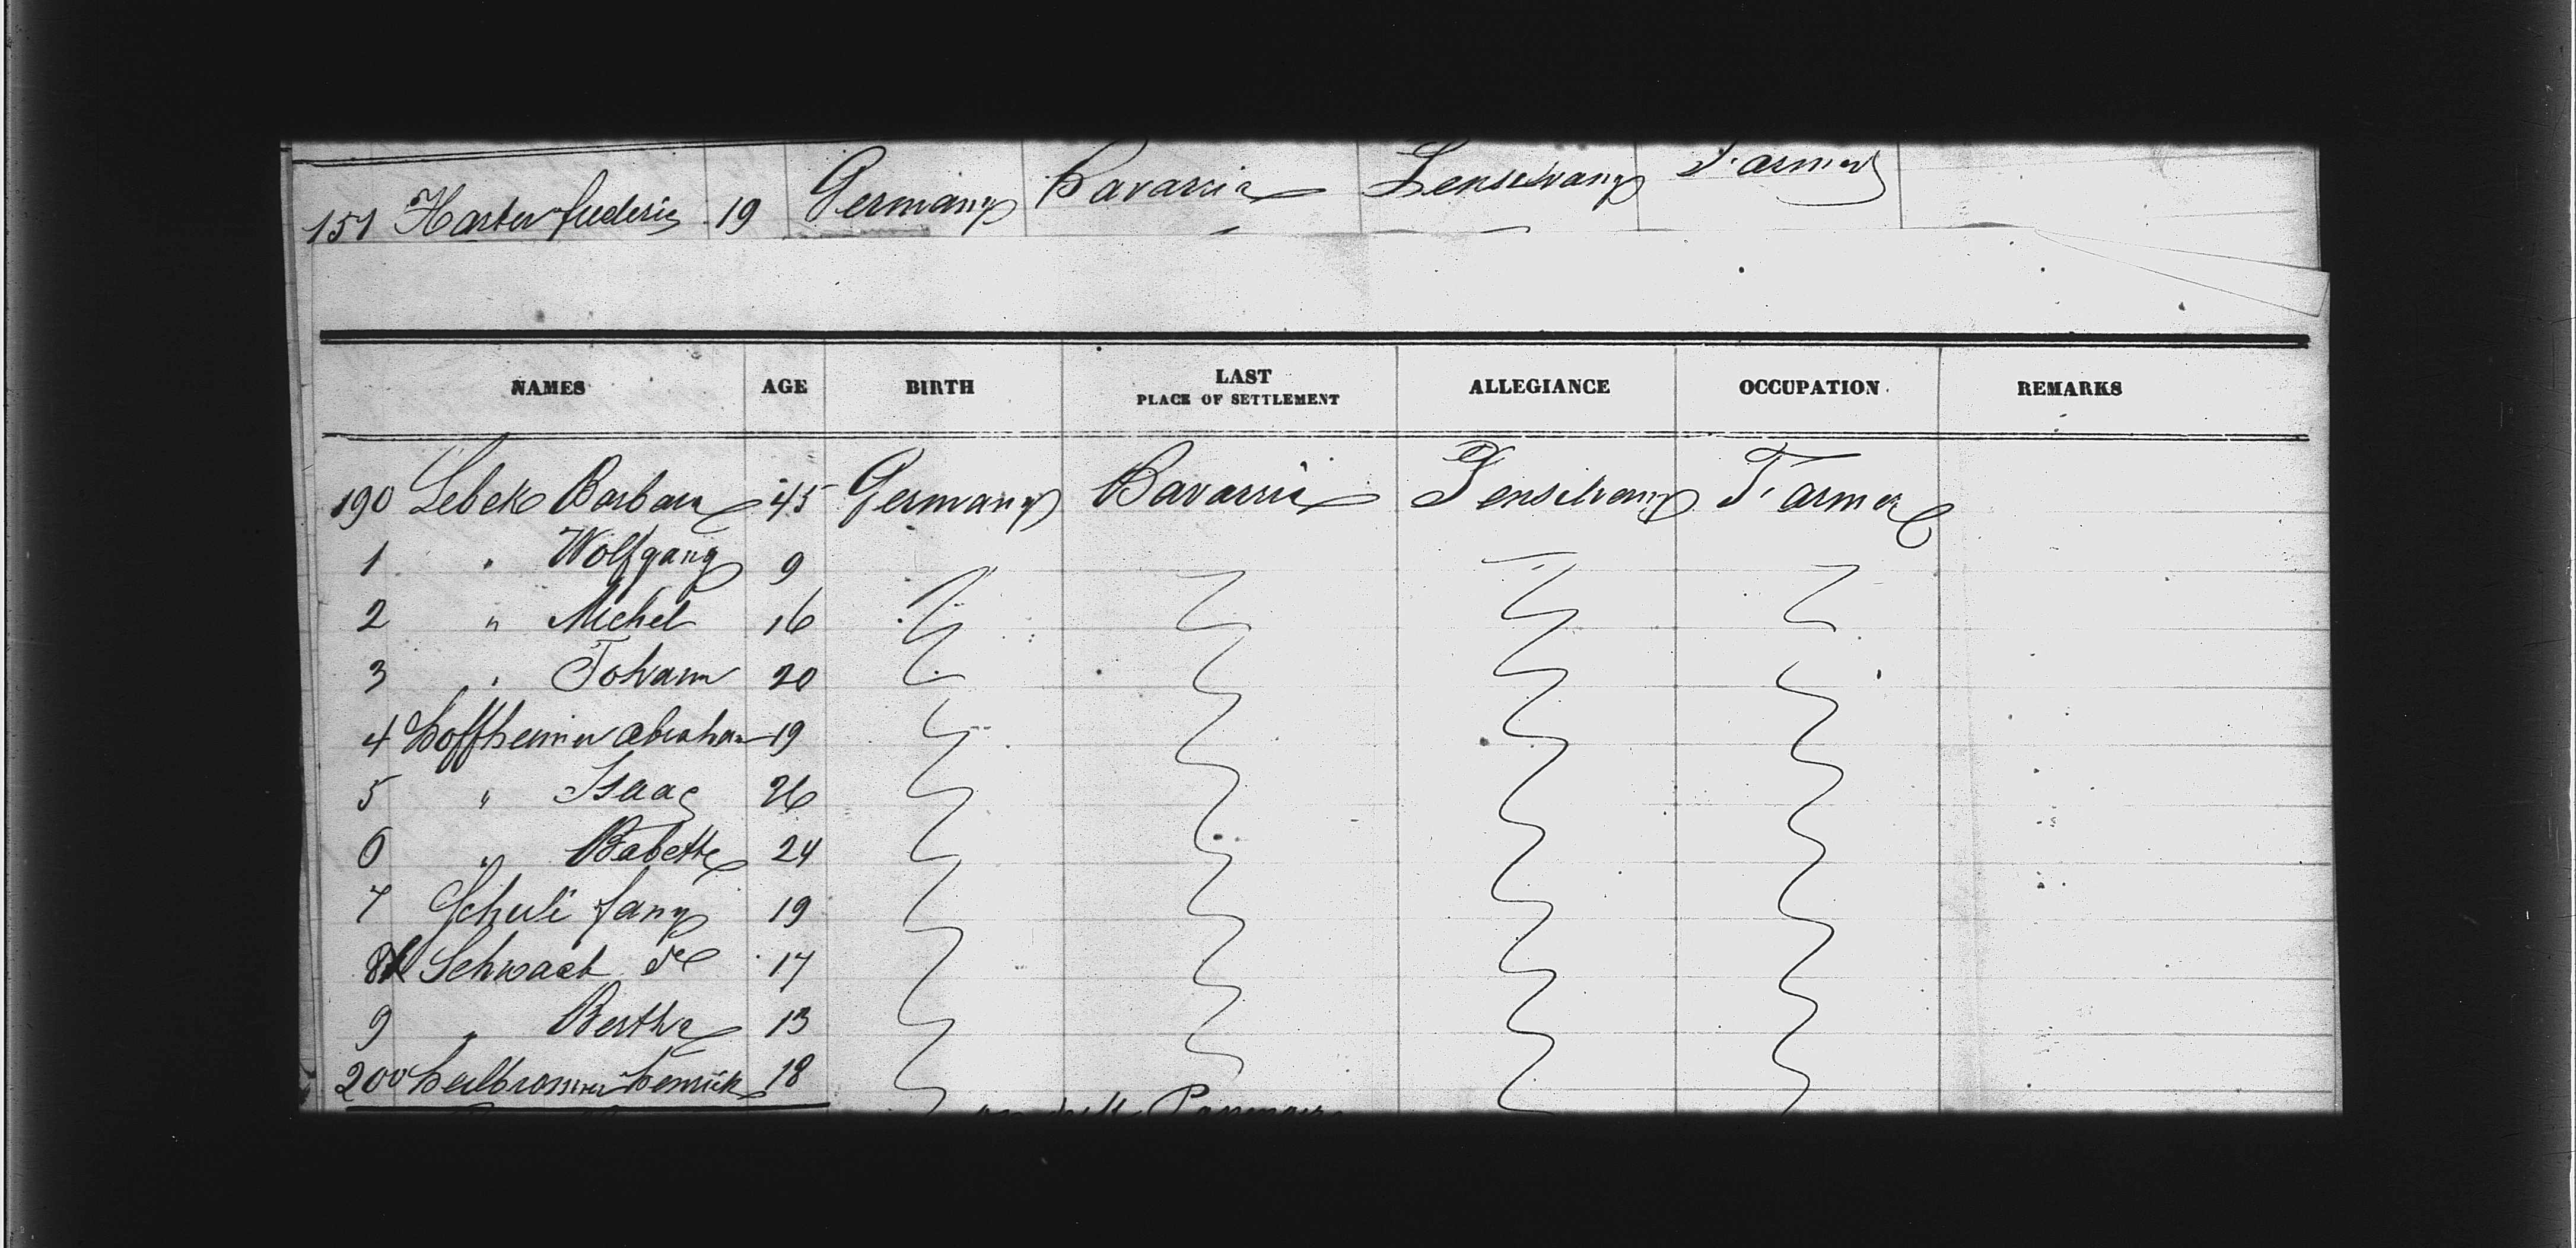 151 Harter frederic 19 Germany Bavarria Pensilvany Farmer
NAMES AGE BIRTH LAST PLACE OF SETTLEMENT ALLEGIANCE OCCUPATION. REMARKS
190 Lebek Barbara 45 Germany Bavarria Pensilvany Farmer
1 " Wolfgang 9
2 " Michel 16
3 " Johann 20
4 hoffheimer abraham 19
5 " Isaac 26
6 " Babette 24
7 Schuli fany 19
8 Schwaab 17
9 " Bertha 13
200 heilbronner henrich 18